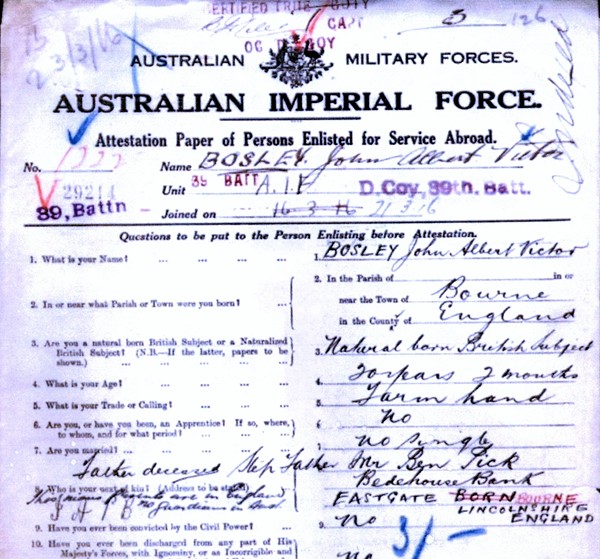 CERTIFIED TRUE COPY
CAPT
OC D COY
3
126
23/3/16
AUSTRALIAN MILITARY FORCES.
AUSTRALIAN IMPERIAL FORCE.
Attestation Paper of Persons Enlisted for Service Abroad.
No. Name BOSLEY. John Albert Victor
29214 Unit 39 BATT A.I.F D. Coy, 39th. Batt.
39, Battn Joined on 16-3-16 21 3 16
Questions to be put to the Person Enlisting before Attestation.
1. What is your Name? ... ... ... ... 1. BOSLEY John Albert Victor
2. In or near what Parish or Town were you born? ... 2. In the Parish of in or
near the Town of Bourne
in the County of England
3. Are you a natural born British Subject or a Naturalized British Subject? (N.B.—If the latter, papers to be shown.) ... ... ... ... 3. Natural born British Subject
4. What is your Age? ... ... ... ... 4. 20 years 2 months
5. What is your Trade or Calling? ... ... ... 5. Farm hand
6. Are you, or have you been, an Apprentice? If so, where, to whom, and for what period? ... ... ... 6. No
7. Are you married? ... ... ... ... 7. no Single
Father deceased Step Father Mr Ben Pick
8. Who is your next of kin? (Address to be stated) Bedehouse Bank
parents are in England EASTGATE BORN BOURNE
no guardians in Aust LINCOLNSHIRE
ENGLAND
9. Have you ever been convicted by the Civil Power? ... 9. No 3/-
10. Have you ever been discharged from any part of His
Majesty's Forces, with Ignominy, or as Incorrigible and